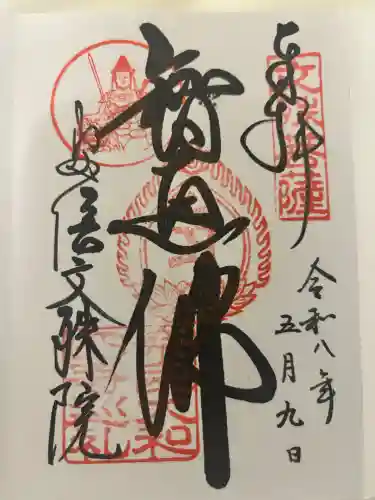 奉拝
令和八年
五月九日
智恵佛
安倍文殊院
文殊菩薩